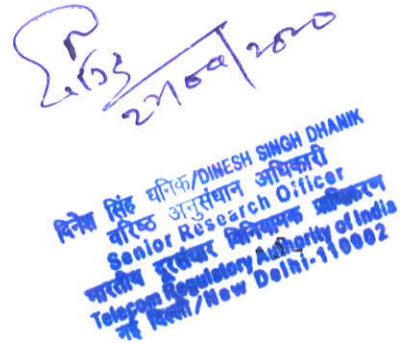 दिनेश सिंह धनिक/DINESH SINGH DHANIK
वरिष्ठ अनुसंधान अधिकारी
Senior Research Officer
भारतीय दूरसंचार विनियामक प्राधिकरण
Telecom Regulatory Authority of India
नई दिल्ली/New Delhi-110002